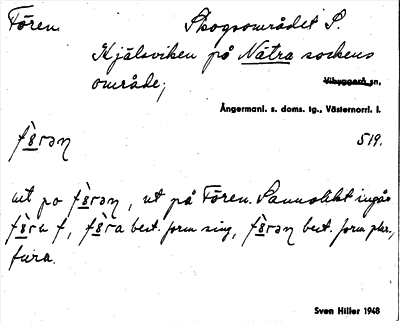 Fören Skogsområdet S.
Kjälsviken på Nätra sockens
område;
Vibyggerå sn,
Ångermanl. s. doms. tg., Västernorrl. l.
519.
ut po , ut på Fören. Sannolikt ingår
f, best. form sing, best. form plur.,
fura.
Sven Hiller 1948